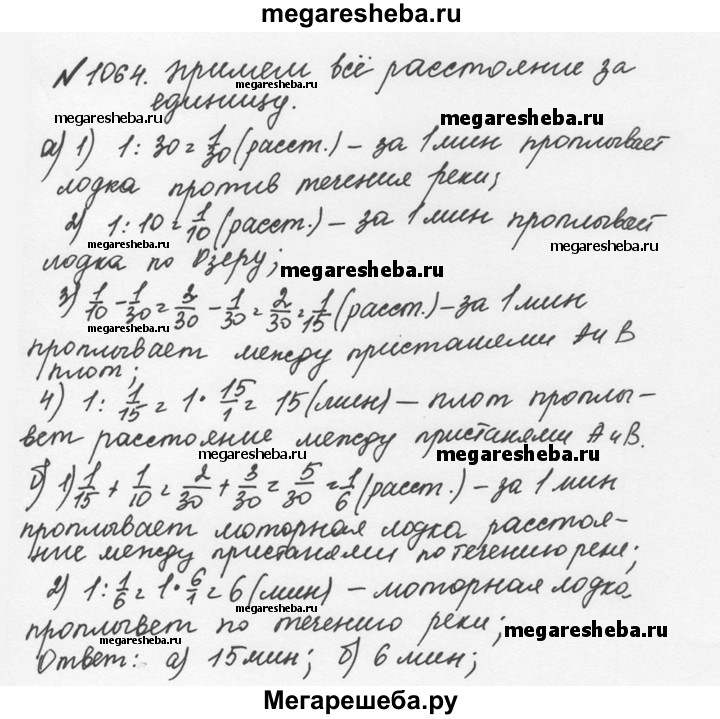 megaresheba.ru
№ 1064. Примем всё расстояние за
megaresheba.ru
единицу.
megaresheba.ru
megaresheba.ru
а) 1) 1 : 30 = 1/30 (расст.) – за 1 мин проплывает
лодка против течения реки;
2) 1 : 10 = 1/10 (расст.) – за 1 мин проплывает
megaresheba.ru
megaresheba.ru
лодка по озеру;
megaresheba.ru
3) 1/10 - 1/30 = 3/30 - 1/30 = 2/30 = 1/15 (расст.) – за 1 мин
megaresheba.ru
проплывает между пристанями А и В
плот;
4) 1 : 1/15 = 1 · 15/1 = 15 (мин) – плот проплы-
вет расстояние между пристанями А и В.
megaresheba.ru
megaresheba.ru
б) 1) 1/15 + 1/10 = 2/30 + 3/30 = 5/30 = 1/6 (расст.) – за 1 мин
проплывает моторная лодка расстоя-
ние между пристанями по течению реки;
2) 1 : 1/6 = 1 · 6/1 = 6 (мин) – моторная лодка
megaresheba.ru
проплывет по течению реки;
megaresheba.ru
Ответ: а) 15 мин; б) 6 мин;
megaresheba.ru
Мегарешеба.ру